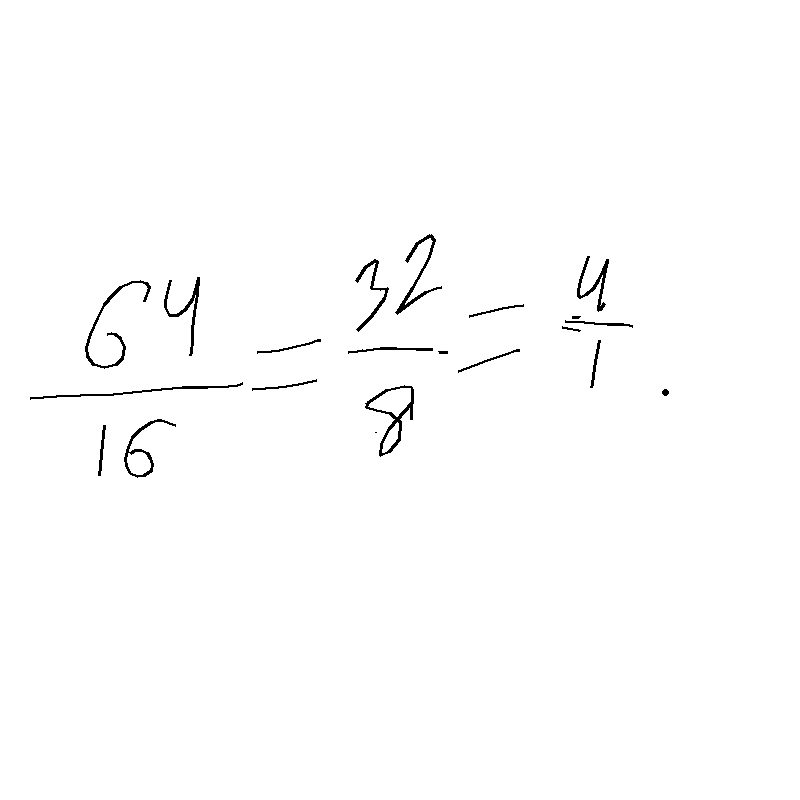 64/16 = 32/8 = 4/1 .